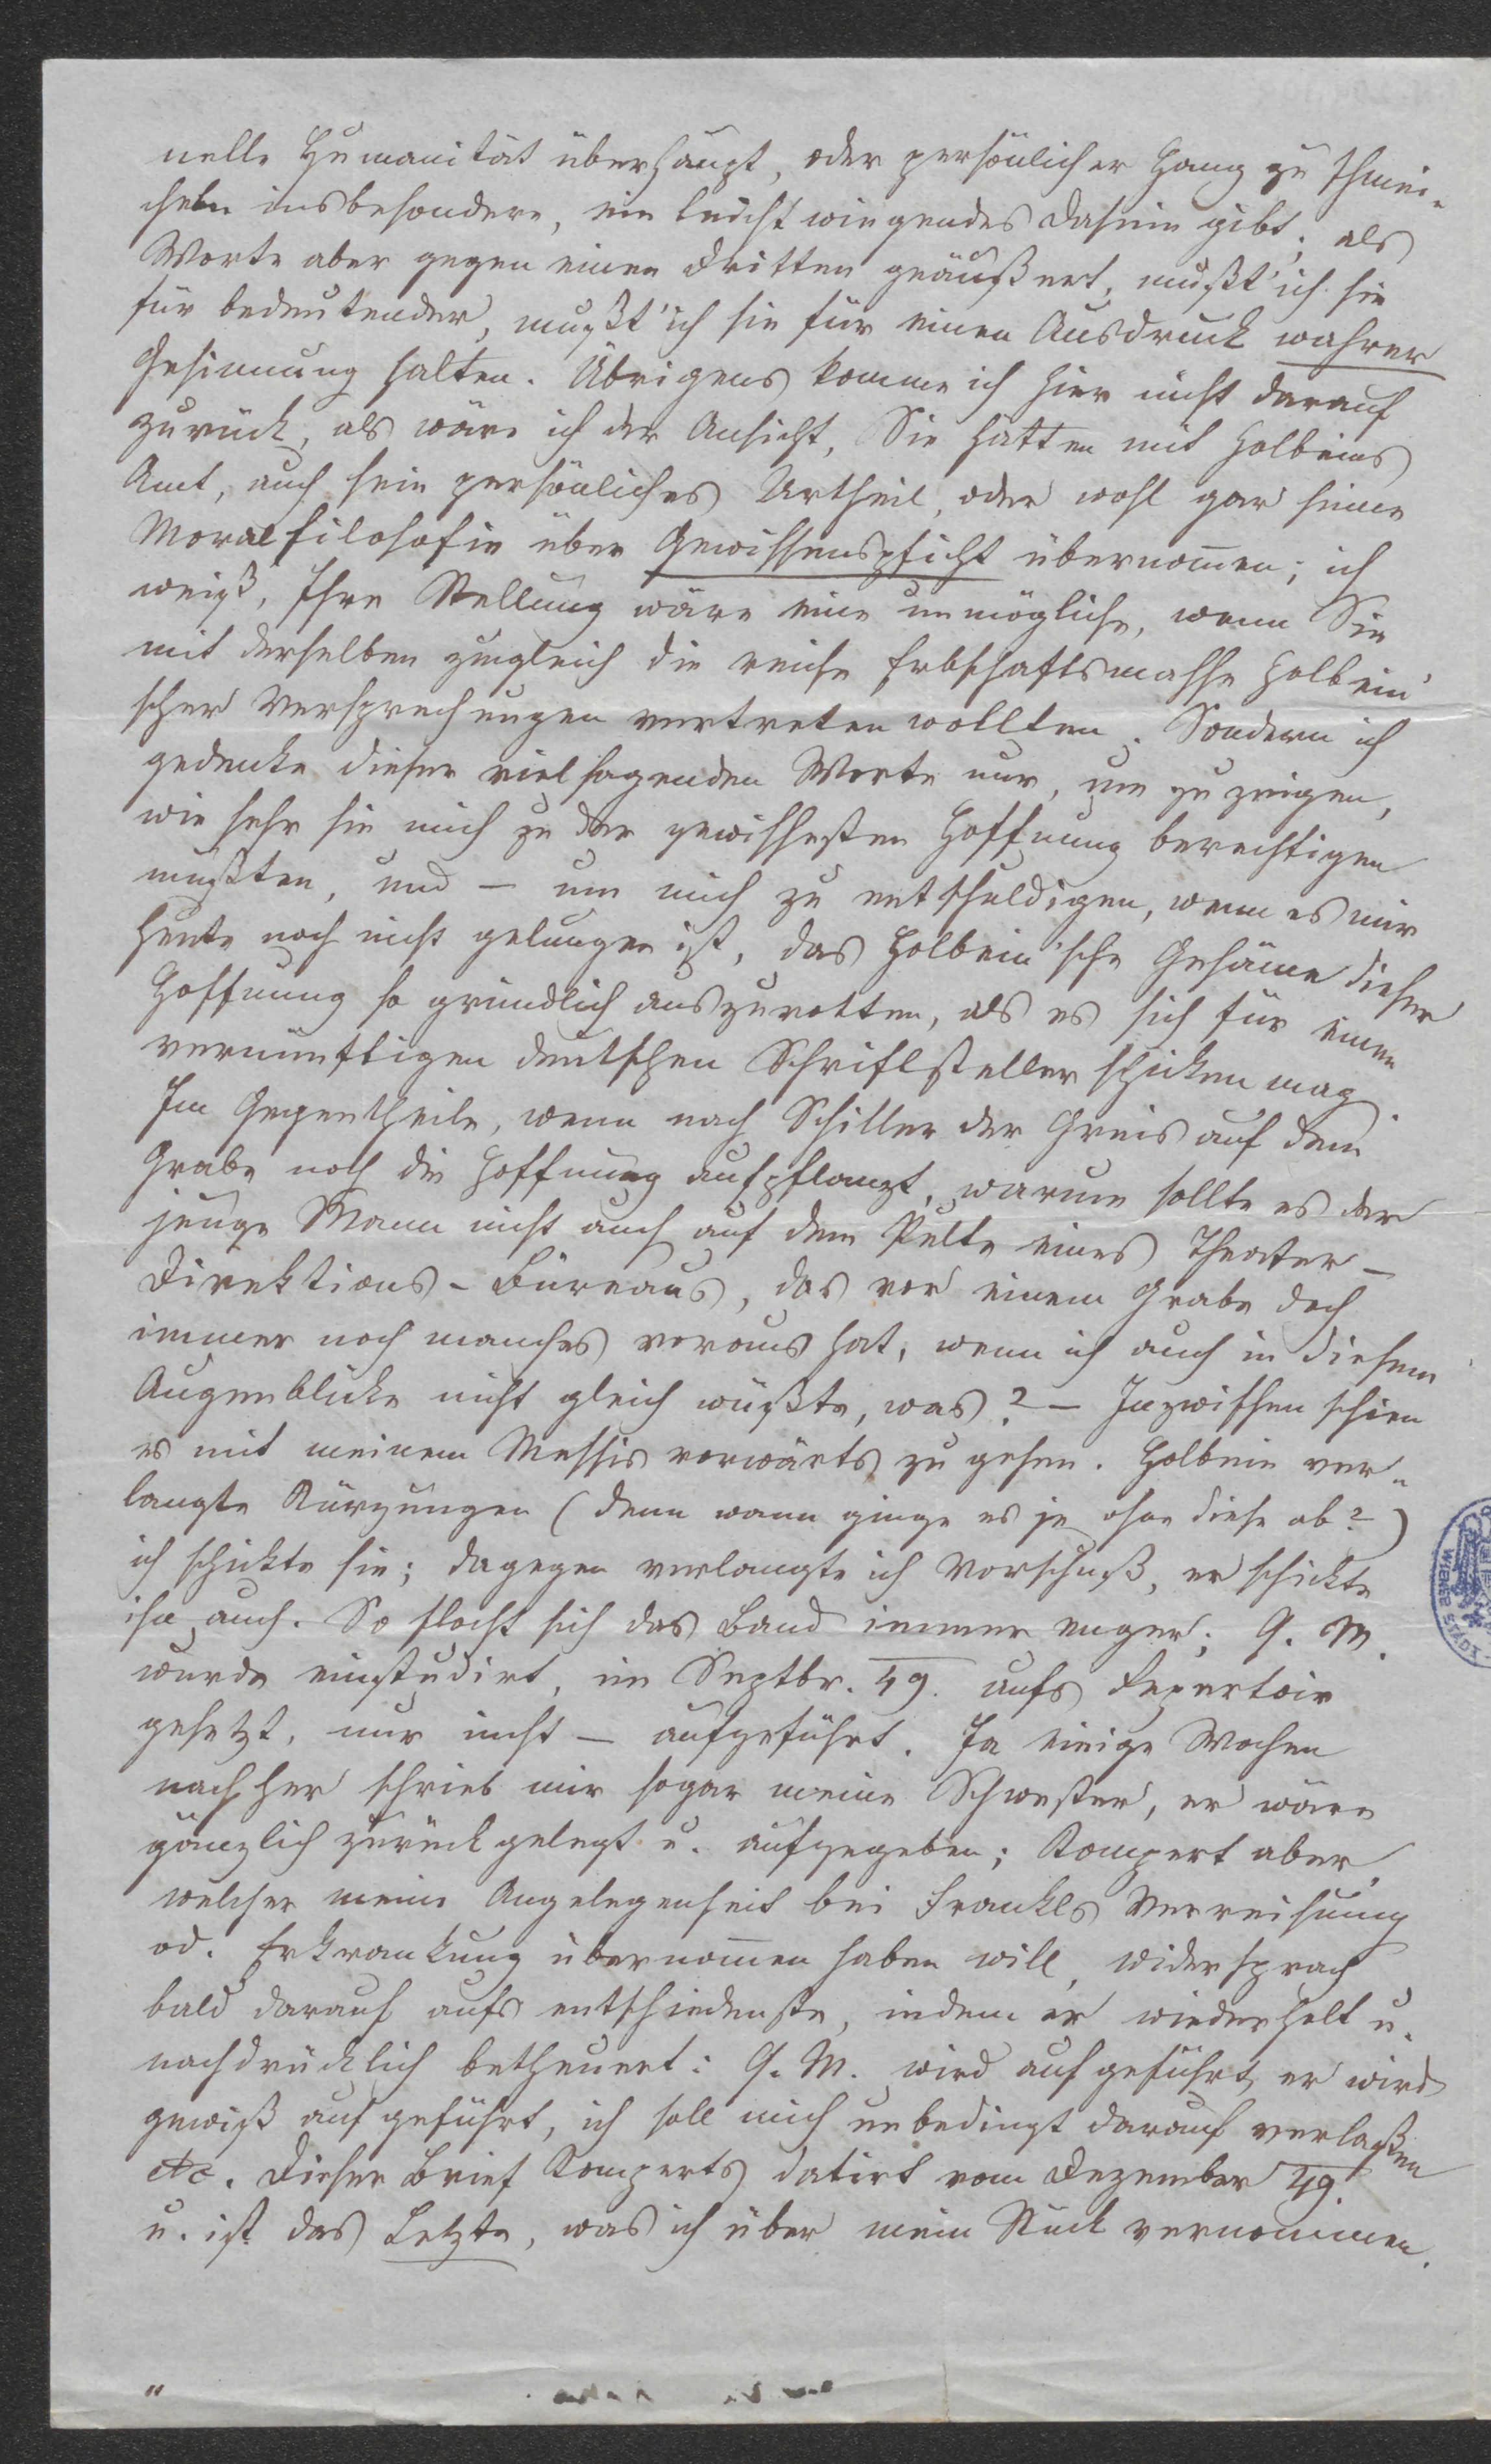 nelle Humanität überhaupt, oder persönlicher Hang zu schmei-
cheln insbesondere, ein leicht wiegendes Dasein gibt; als
Worte aber gegen einen Dritten geäußert, mußt' ich sie
für bedeutender, mußt' ich sie für einen Ausdruck wahrer
Gesinnung halten. Übrigens komme ich hier nicht darauf
zurück, als wäre ich der Ansicht, Sie hätten mit Holbeins
Amt, auch sein persönliches Urtheil, oder wohl gar seine
Moralfilosofie über Gewissenspflicht übernommen; ich
weiß, Ihre Stellung wäre eine unmögliche, wenn Sie
mit derselben zugleich die reiche Erbschaftsmasse Holbein'
scher Versprechungen vertreten wollten. Sondern ich
gedenke dieser vielsagenden Worte nur, um zu zeigen,
wie sehr sie mich zu der gewissesten Hoffnung berechtigen
mußten, und — um mich zu entschuldigen, wenn es mir
heute noch nicht gelungen ist, das Holbein'sche Gesäme dieser
Hoffnung so gründlich auszurotten, als es sich für einen
vernünftigen deutschen Schriftsteller schicken mag.
Im Gegentheile, wenn nach Schiller der Greis auf dem
Grabe noch die Hoffnung aufpflanzt, warum sollte es der
junge Mann nicht auch auf dem Pulte eines Theater-
Direktions-Büreaus, das vor einem Grabe doch
immer noch manches voraus hat, wenn ich auch in diesem
Augenblicke nicht gleich wüßte, was? — Inzwischen schien
es mit meinem Messis vorwärts zu gehen. Holbein ver-
langte Kürzungen (denn wann ginge es je ohne diese ab?)
ich schickte sie; dagegen verlangte ich Vorschuß, er schickte
ihn auch. So flocht sich das Band immer enger; Q. M.
wurde einstudirt, im Septbr. 49. aufs Repertoir
gesetzt, nur nicht — aufgeführt. Ja einige Wochen
nachher schrieb mir sogar meine Schwester, er wäre
gänzlich zurückgelegt u. aufgegeben; Kompert aber,
welcher meine Angelegenheit bei Frankls Verreisung
od. Erkrankung übernommen haben will, widersprach
bald darauf aufs entschiedenste, indem er wiederholt u.
nachdrücklich betheuert: Q. M. wird aufgeführt, er wird
gewiß aufgeführt, ich soll mich unbedingt darauf verlaßen
etc. Dieser Brief Komperts datirt vom Dezember 49.
u. ist das Letzte, was ich über mein Stück vernommen.